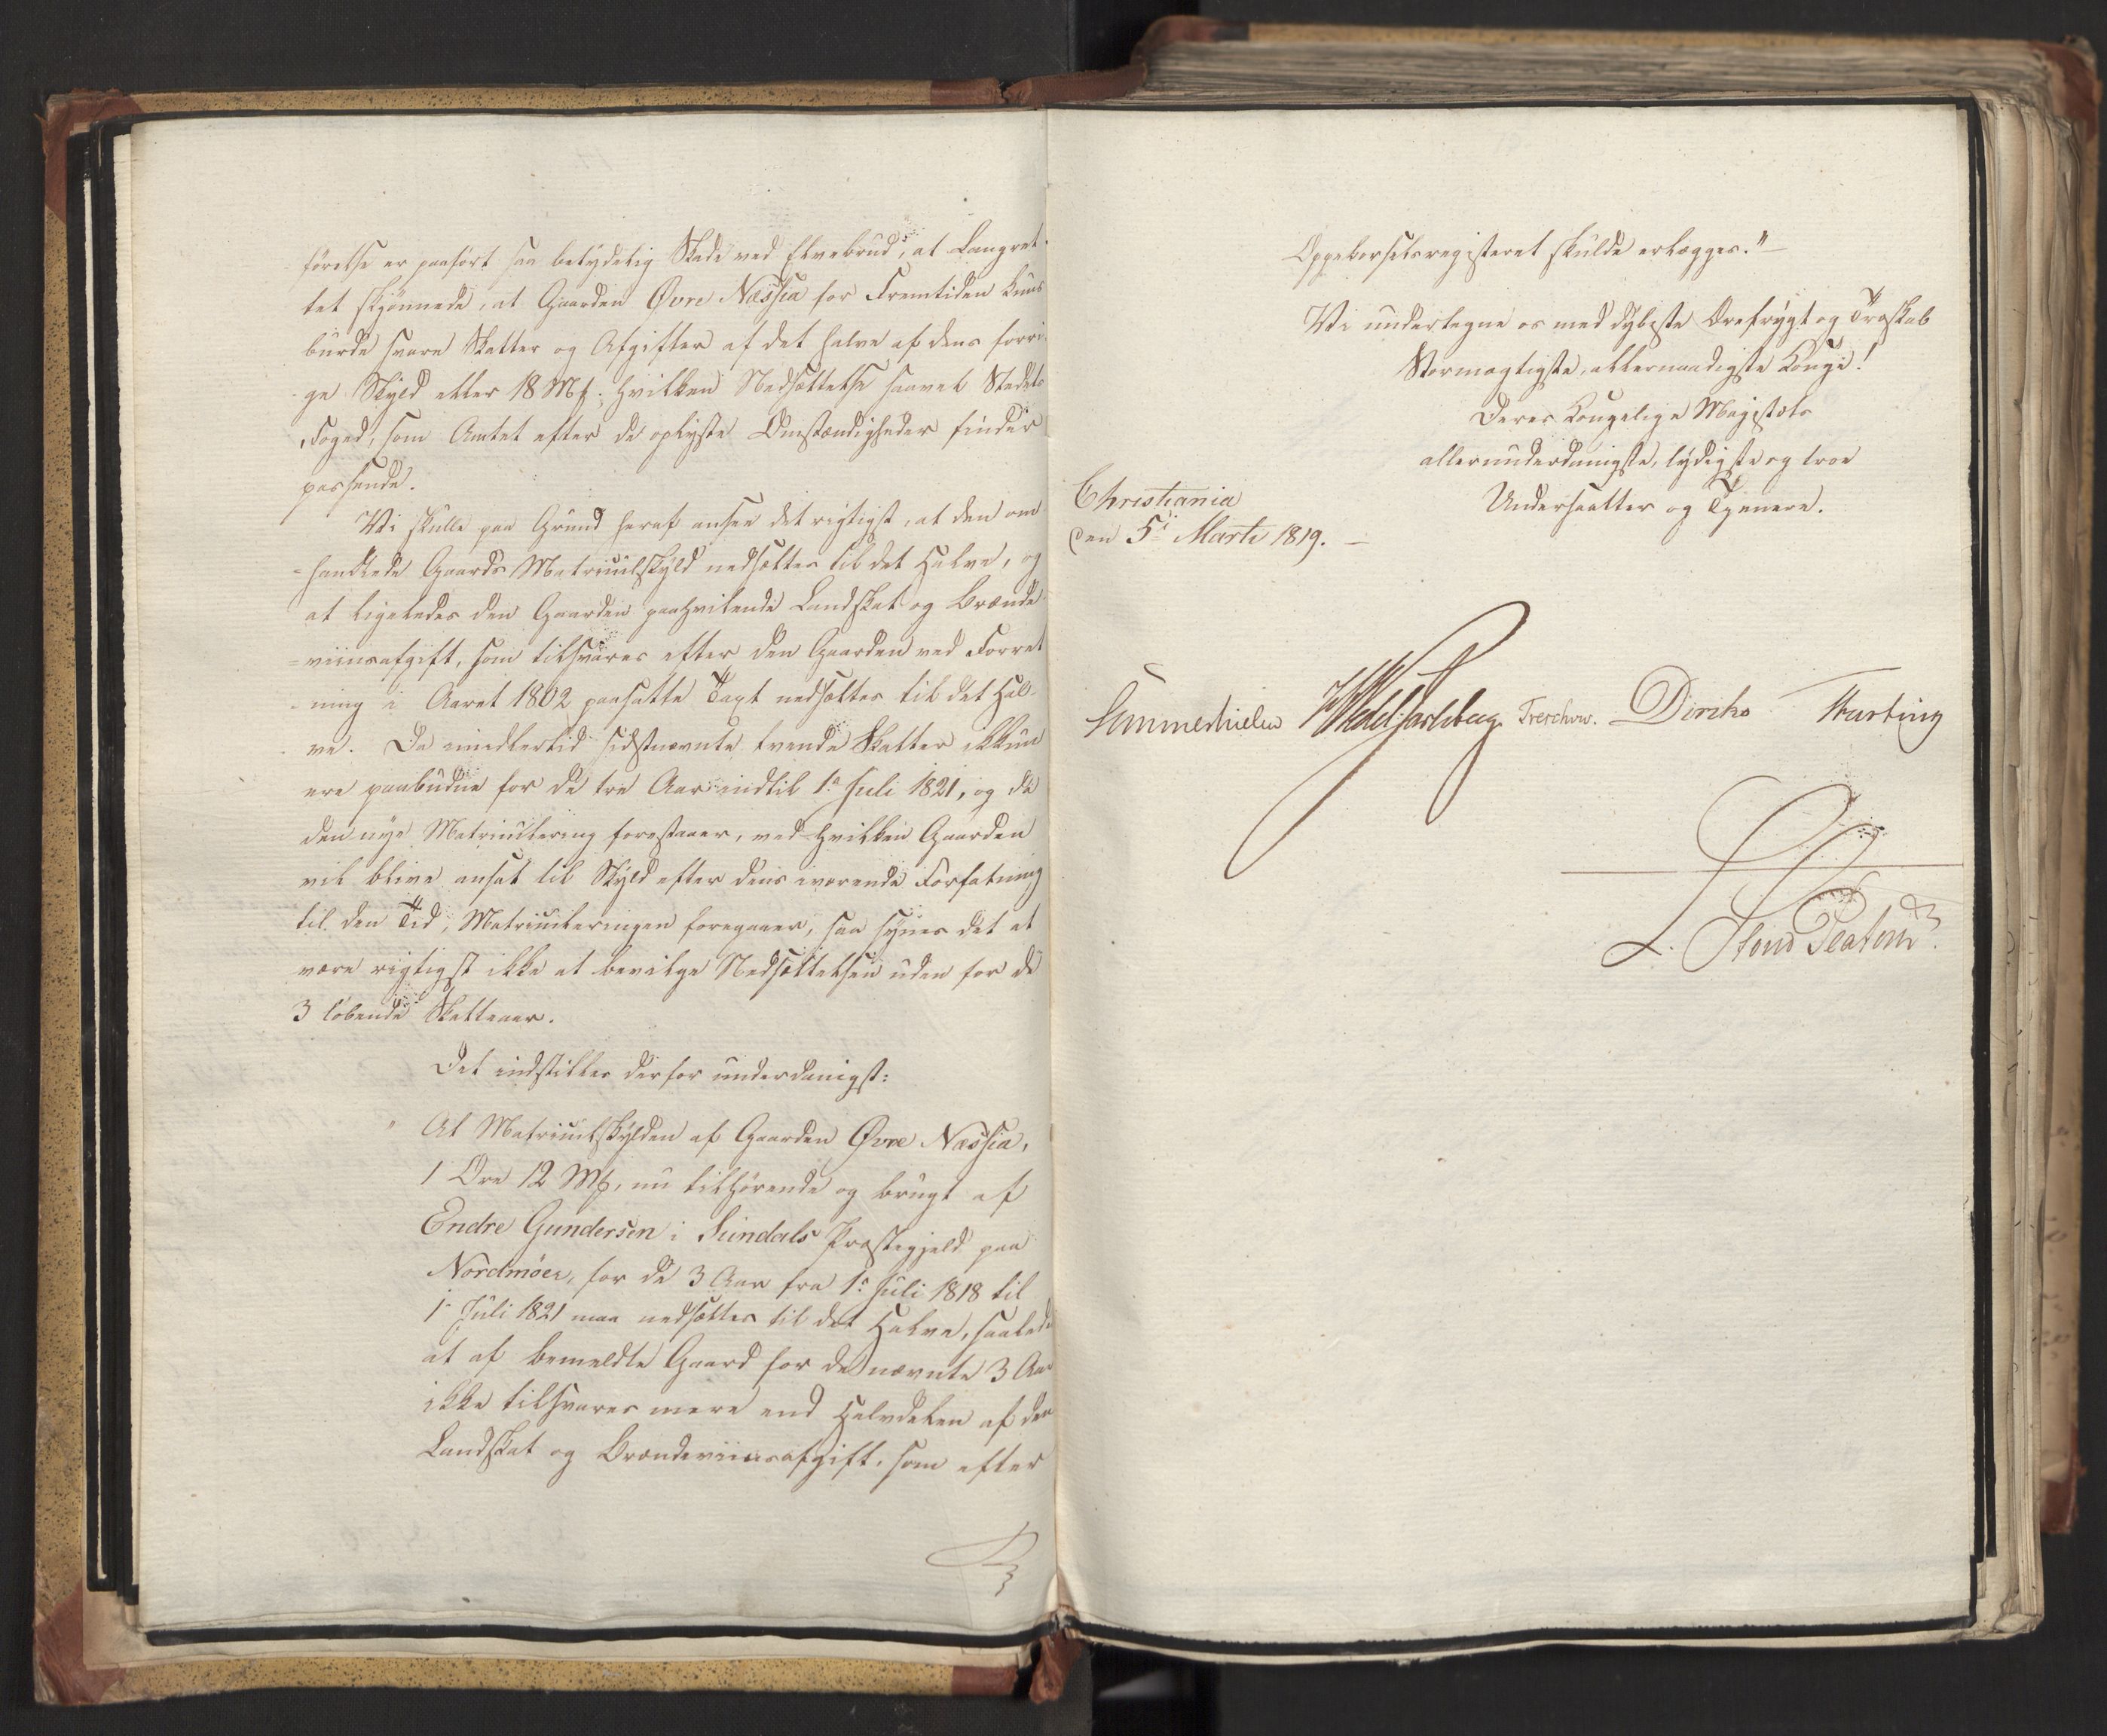 førelse er paaført saa betydelig Skade ved Elvebrud, at Laugret-
tet skjønnede, at Gaarden Øvre Næssia for Fremtiden kuns
burde svare Skatter og Afgifter af det halve af dens forri-
ge Skyld eller 18 Mk; hvilken Nedsættelse saavel Stedets
Foged, som Amtet efter de oplyste Omstændigheder finder
passende.
Vi skulle paa Grund heraf ansee det rigtigst, at den om-
=handlede Gaards Matriculskyld nedsættes til det Halve, og
at ligeledes den Gaarden paahvilende Landskat og Brænde-
=viinsafgift, som tilsvares efter den Gaarden ved Forret
=ning i Aaret 1802 paasatte Taxt nedsættes til det Hal-
ve. Da imidlertid sidstnævnte tvende Skatter ikkun
ere paabudne for de tre Aar indtil 1ste Juli 1821, og da
den nye Matriculering forestaaer, ved hvilken Gaarden
vil blive ansat til Skyld efter dens værende Forfatning
til den Tid, Matriculeringen foregaaer, saa synes det at
være rigtigst ikke at bevilge Nedsættelsen uden for de
3 løbende Skatteaar.
Det indstilles derfor underdanigst:
" At Matriculskylden af Gaarden Øvre Næssia,
1 Øre 12 Mk, nu tilhørende og brugt af
Endre Gundersen i Sundals Præstegjeld paa
Nordmöer, for de 3 Aar fra 1ste Juli 1818 til
1ste Juli 1821 maa nedsættes til det Halve, saaledes
at af bemeldte Gaard for de nævnte 3 Aar
ikke tilsvares mere end Halvdelen af den
Landskat og Brændeviinsafgift, som efter
Oppebørselsregisteret skulde erlægges."
Vi undertegne os med dybeste Ærefrygt og Troskab
Stormægtigste, allernaadigste Konge!
Deres Kongelige Majestæts
allerunderdanigste, lydigste og troe
Undersaatter og Tjenere.
Christiania
den 5te Marti 1819.
Sommerhielm HWedel Jarlsberg Treschow. Diriks Hurting
L.